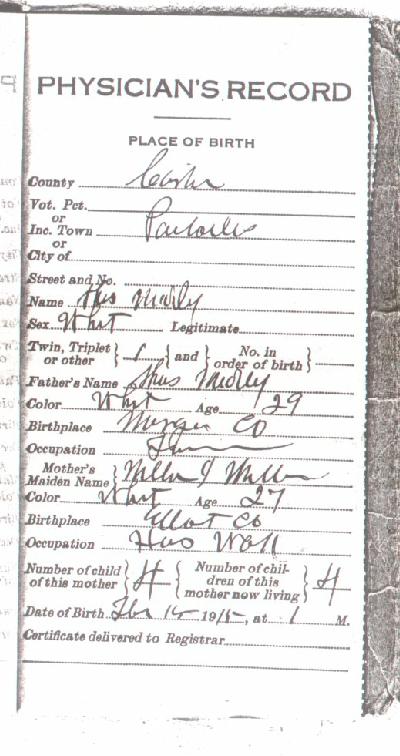 PHYSICIAN'S RECORD
PLACE OF BIRTH
County Carter
Vot. Pct.
or
Inc. Town
or
City of
Street and No.
Name
Sex Whit Legitimate
Twin, Triplet or other { 1 } and { No. in order of birth }
Father's Name
Color Whit Age 29
Birthplace Morgan Co
Occupation
Mother's Maiden Name }
Color Whit Age 27
Birthplace Elliot Co
Occupation Hous
Number of child of this mother } 4 { Number of children of this mother now living } 4
Date of Birth Feb 15 1915, at 1 M.
Certificate delivered to Registrar